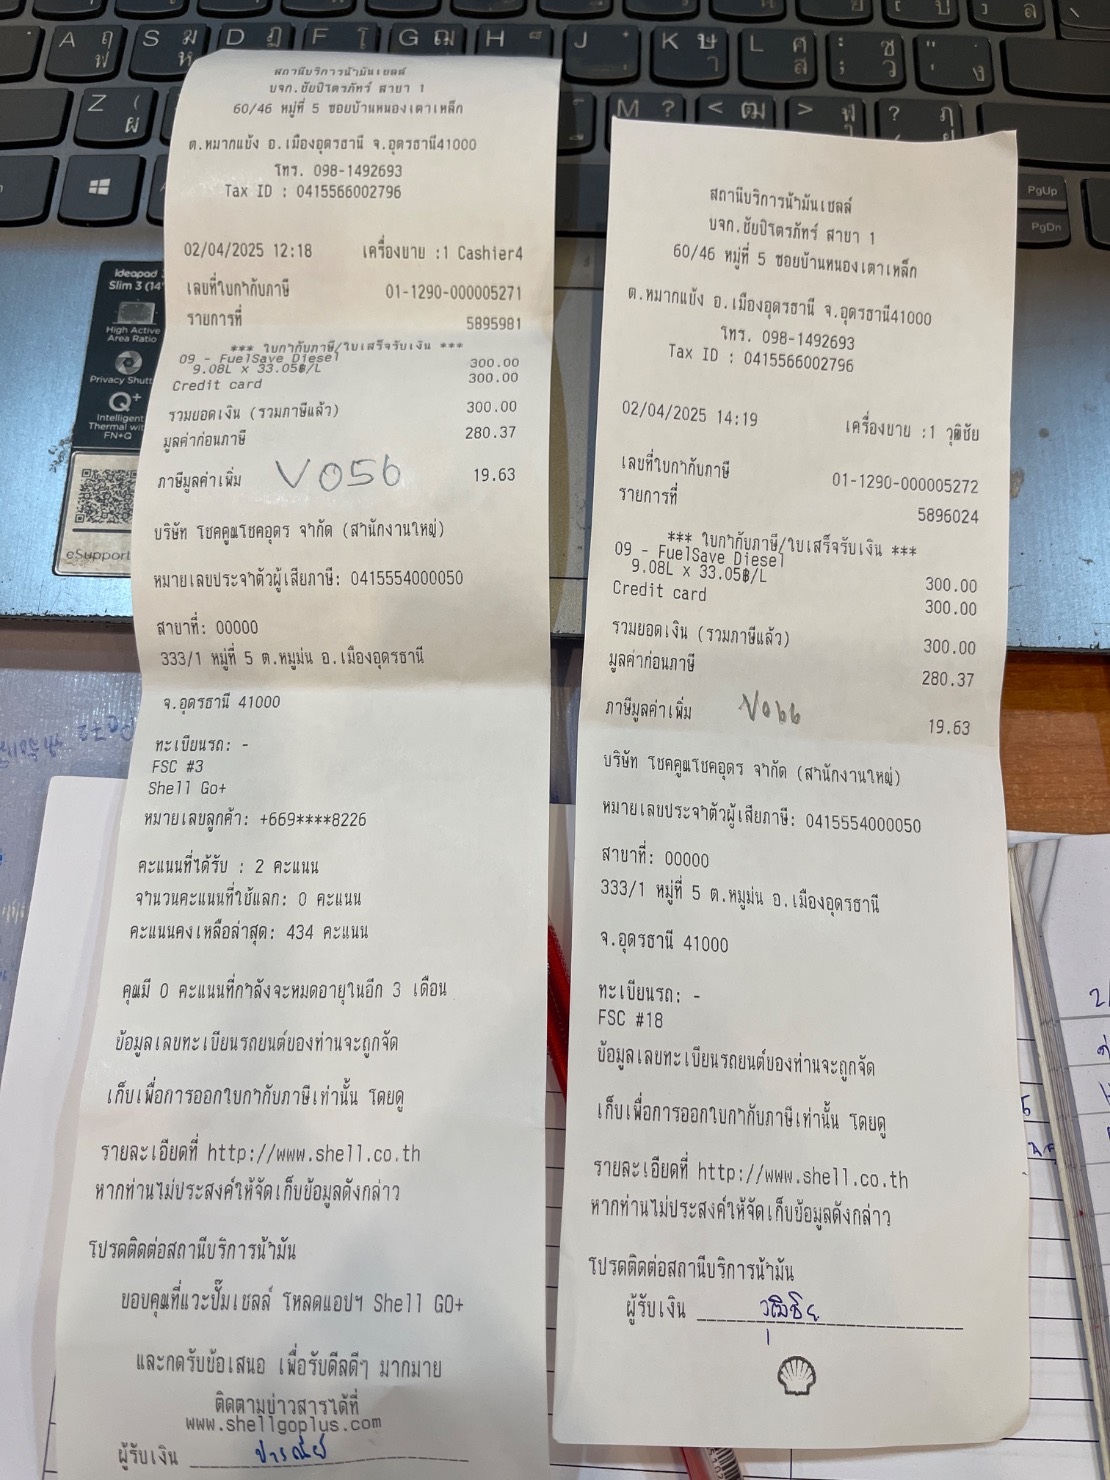 สถานีบริการน้ำมันเชลล์
บจก.ชัยปิโตรภัทร์ สาขา 1
60/46 หมู่ที่ 5 ซอยบ้านหนองเตาเหล็ก
ต.หมากแข้ง อ.เมืองอุดรธานี จ.อุดรธานี41000
โทร. 098-1492693
Tax ID : 0415566002796
02/04/2025 12:18 เครื่องขาย :1 Cashier4
เลขที่ใบกำกับภาษี 01-1290-000005271
รายการที่ 5895981
*** ใบกำกับภาษี/ใบเสร็จรับเงิน ***
09 - FuelSave Diesel 300.00
9.08L x 33.05฿/L
Credit card 300.00
รวมยอดเงิน (รวมภาษีแล้ว) 300.00
มูลค่าก่อนภาษี 280.37
ภาษีมูลค่าเพิ่ม V056 19.63
บริษัท โชคคูณโชคอุดร จำกัด (สำนักงานใหญ่)
หมายเลขประจำตัวผู้เสียภาษี: 0415554000050
สาขาที่: 00000
333/1 หมู่ที่ 5 ต.หมูม่น อ.เมืองอุดรธานี
จ.อุดรธานี 41000
ทะเบียนรถ: -
FSC #3
Shell Go+
หมายเลขลูกค้า: +669****8226
คะแนนที่ได้รับ : 2 คะแนน
จำนวนคะแนนที่ใช้แลก: 0 คะแนน
คะแนนคงเหลือล่าสุด: 434 คะแนน
คุณมี 0 คะแนนที่กำลังจะหมดอายุในอีก 3 เดือน
ข้อมูลเลขทะเบียนรถยนต์ของท่านจะถูกจัด
เก็บเพื่อการออกใบกำกับภาษีเท่านั้น โดยดู
รายละเอียดที่ http://www.shell.co.th
หากท่านไม่ประสงค์ให้จัดเก็บข้อมูลดังกล่าว
โปรดติดต่อสถานีบริการน้ำมัน
ขอบคุณที่แวะปั๊มเชลล์ โหลดแอปฯ Shell GO+
และกดรับข้อเสนอ เพื่อรับดีลดีๆ มากมาย
ติดตามข่าวสารได้ที่
www.shellgoplus.com
ผู้รับเงิน ปารณีย์
สถานีบริการน้ำมันเชลล์
บจก.ชัยปิโตรภัทร์ สาขา 1
60/46 หมู่ที่ 5 ซอยบ้านหนองเตาเหล็ก
ต.หมากแข้ง อ.เมืองอุดรธานี จ.อุดรธานี41000
โทร. 098-1492693
Tax ID : 0415566002796
02/04/2025 14:19 เครื่องขาย :1 วุฒิชัย
เลขที่ใบกำกับภาษี 01-1290-000005272
รายการที่ 5896024
*** ใบกำกับภาษี/ใบเสร็จรับเงิน ***
09 - FuelSave Diesel 300.00
9.08L x 33.05฿/L
Credit card 300.00
รวมยอดเงิน (รวมภาษีแล้ว) 300.00
มูลค่าก่อนภาษี 280.37
ภาษีมูลค่าเพิ่ม V066 19.63
บริษัท โชคคูณโชคอุดร จำกัด (สำนักงานใหญ่)
หมายเลขประจำตัวผู้เสียภาษี: 0415554000050
สาขาที่: 00000
333/1 หมู่ที่ 5 ต.หมูม่น อ.เมืองอุดรธานี
จ.อุดรธานี 41000
ทะเบียนรถ: -
FSC #18
ข้อมูลเลขทะเบียนรถยนต์ของท่านจะถูกจัด
เก็บเพื่อการออกใบกำกับภาษีเท่านั้น โดยดู
รายละเอียดที่ http://www.shell.co.th
หากท่านไม่ประสงค์ให้จัดเก็บข้อมูลดังกล่าว
โปรดติดต่อสถานีบริการน้ำมัน
ผู้รับเงิน วุฒิชัย
ideapad
Slim 3 (14"
High Active
Area Ratio
Privacy Shutt
Q+
Intelligent
Thermal wit
FN+Q
eSupport
PgUp
PgDn